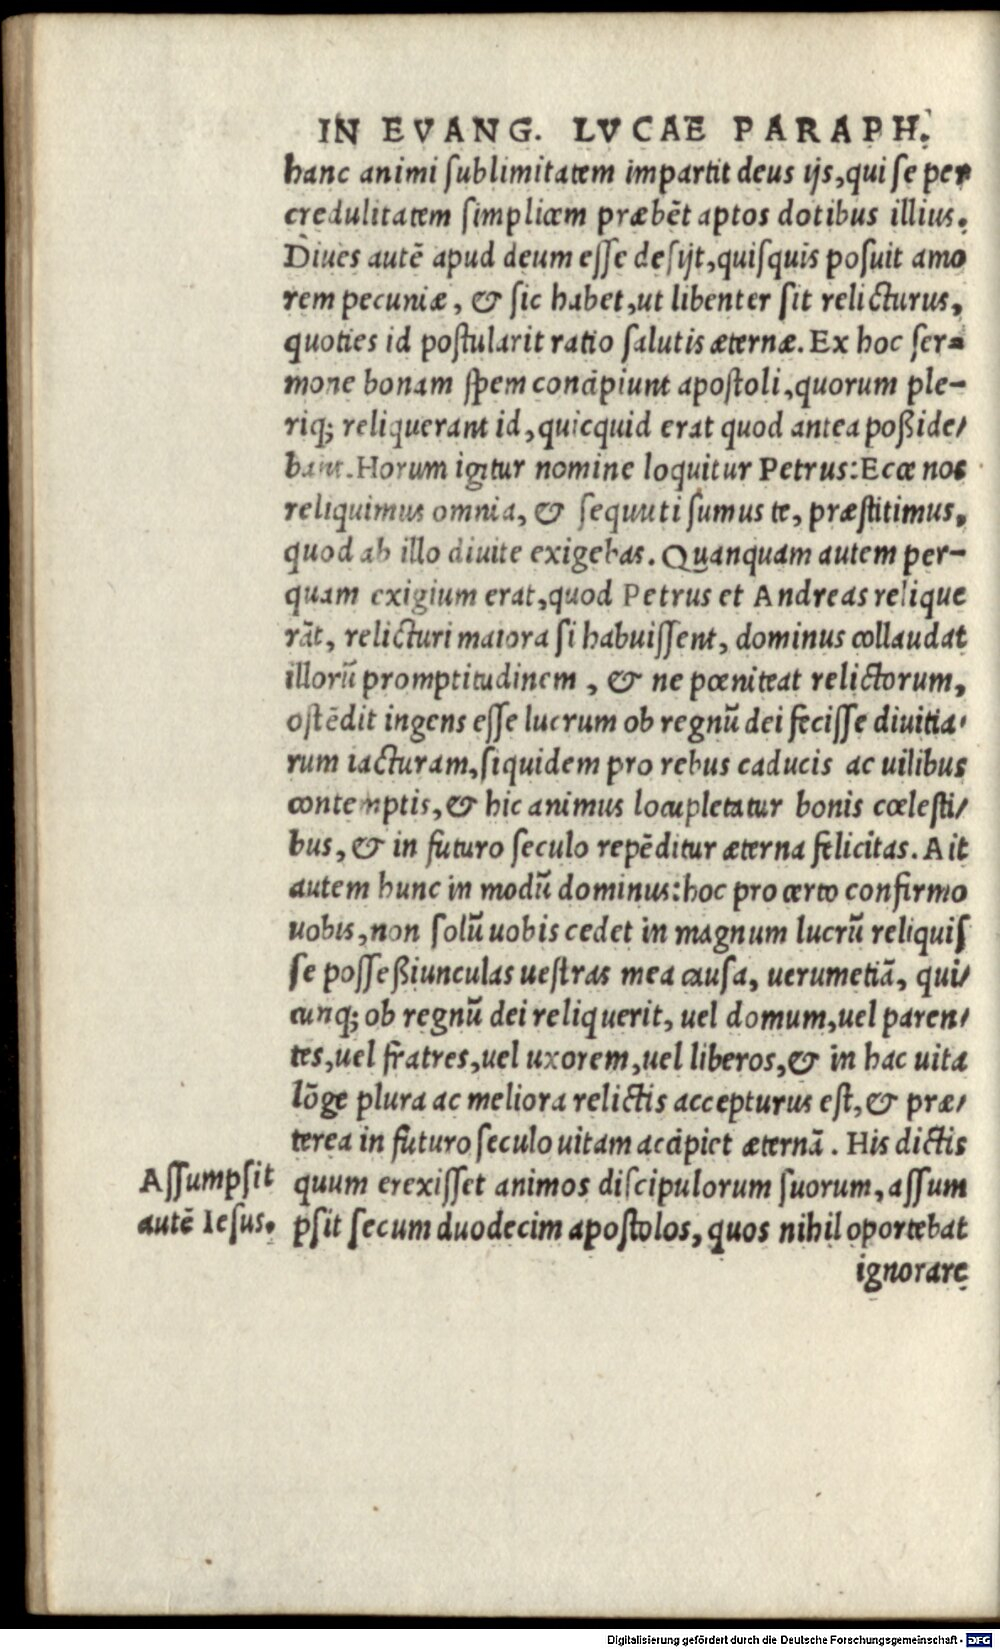 IN EVANG. LVCAE PARAPH.
hanc animi ſublimitatem impartit deus ijs,qui ſe per
credulitatem ſimplicem præbēt aptos dotibus illius.
Diues autē apud deum eſſe deſijt,quiſquis poſuit amo
rem pecuniæ, & ſic habet,ut libenter ſit relicturus,
quoties id poſtularit ratio ſalutis æternæ. Ex hoc ſer-
mone bonam ſpem concipiunt apoſtoli,quorum ple-
riq; reliquerant id,quicquid erat quod antea poßide/
bant. Horum igitur nomine loquitur Petrus: Ecce nos
reliquimus omnia, & ſequuti ſumus te, præſtitimus,
quod ab illo diuite exigebas. Quanquam autem per-
quam exigium erat,quod Petrus et Andreas relique
rāt, relicturi maiora ſi habuiſſent, dominus collaudat
illorū promptitudinem, & ne pœniteat relictorum,
oſtēdit ingens eſſe lucrum ob regnū dei feciſſe diuitia/
rum iacturam,ſiquidem pro rebus caducis ac uilibus
contemptis,& hic animus locupletatur bonis cœleſti/
bus, & in futuro ſeculo repēditur æterna felicitas. Ait
autem hunc in modū dominus: hoc pro certo confirmo
uobis,non ſolū uobis cedet in magnum lucrū reliquiſ
ſe poſſeßiunculas ueſtras mea cauſa, uerumetiā, qui/
cunq; ob regnū dei reliquerit, uel domum,uel paren/
tes,uel fratres,uel uxorem,uel liberos,& in hac uita
lōge plura ac meliora relictis accepturus eſt,& præ/
terea in futuro ſeculo uitam accipiet æternā. His dictis
Aſſumpſit
autē Ieſus.
quum erexiſſet animos diſcipulorum ſuorum, aſſum
pſit ſecum duodecim apoſtolos, quos nihil oportebat
ignorare
Digitalisierung gefördert durch die Deutsche Forschungsgemeinschaft - DFG